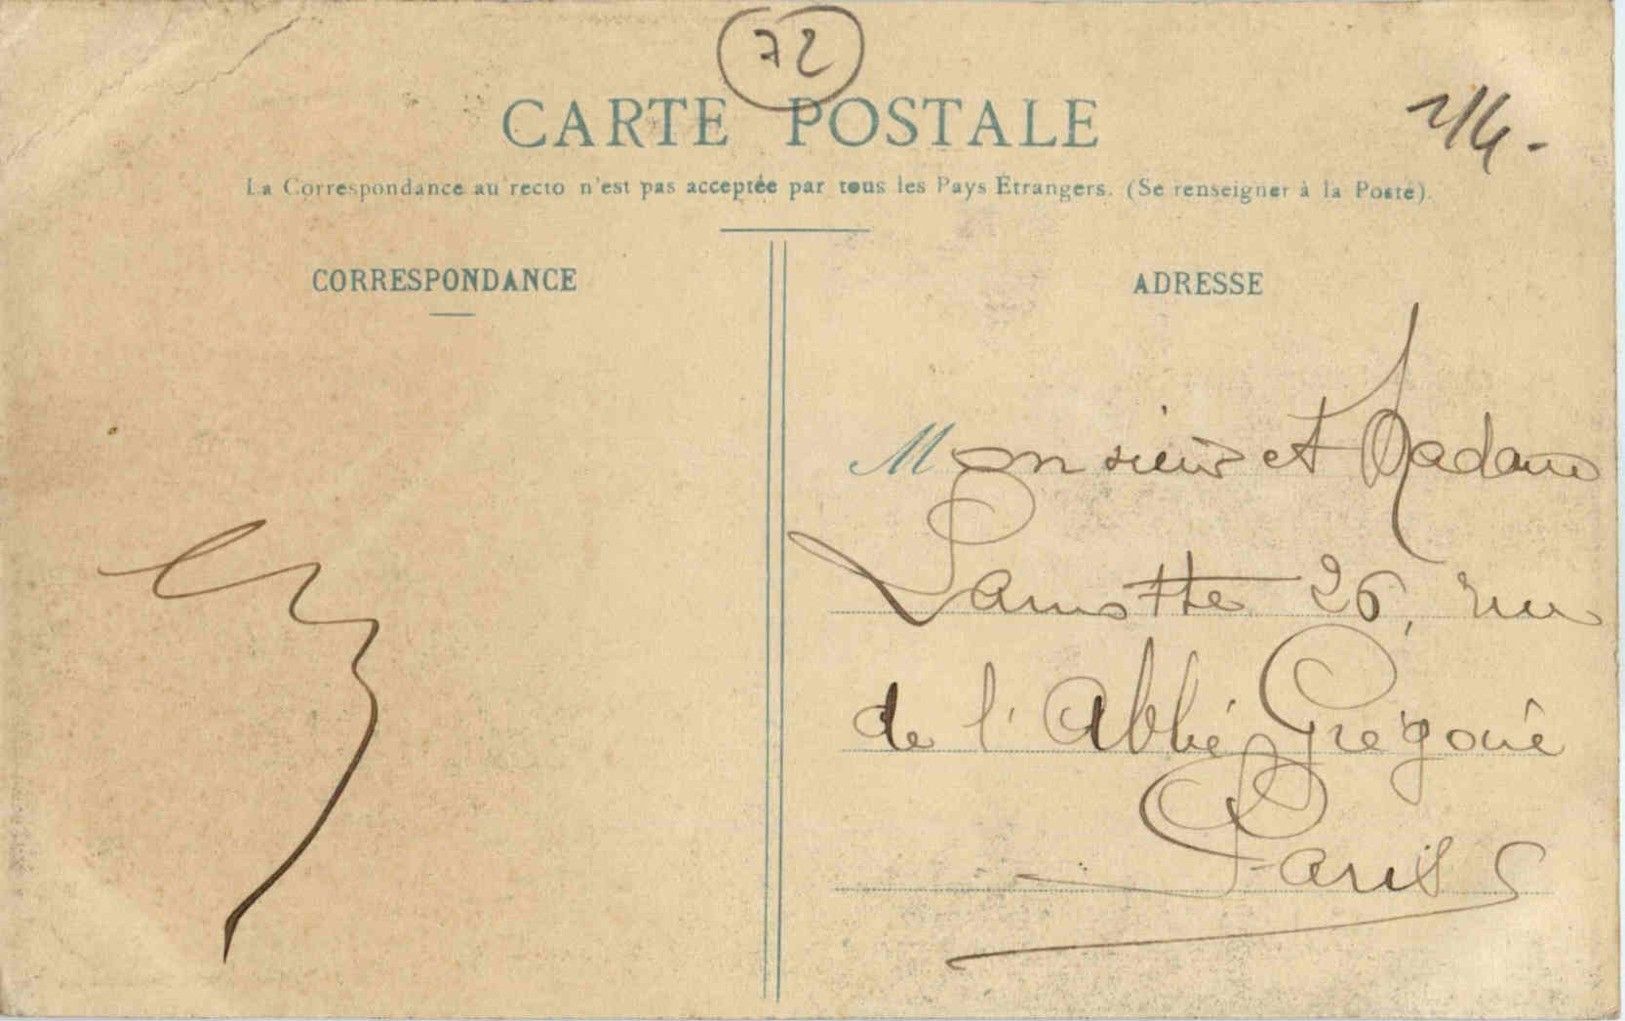 72
CARTE POSTALE
La Correspondance au recto n'est pas acceptée par tous les Pays Étrangers. (Se renseigner à la Poste).
CORRESPONDANCE
ADRESSE
Monsieur et Madame
Lamotte 26, rue
de l'Abbé Grégoire
Paris